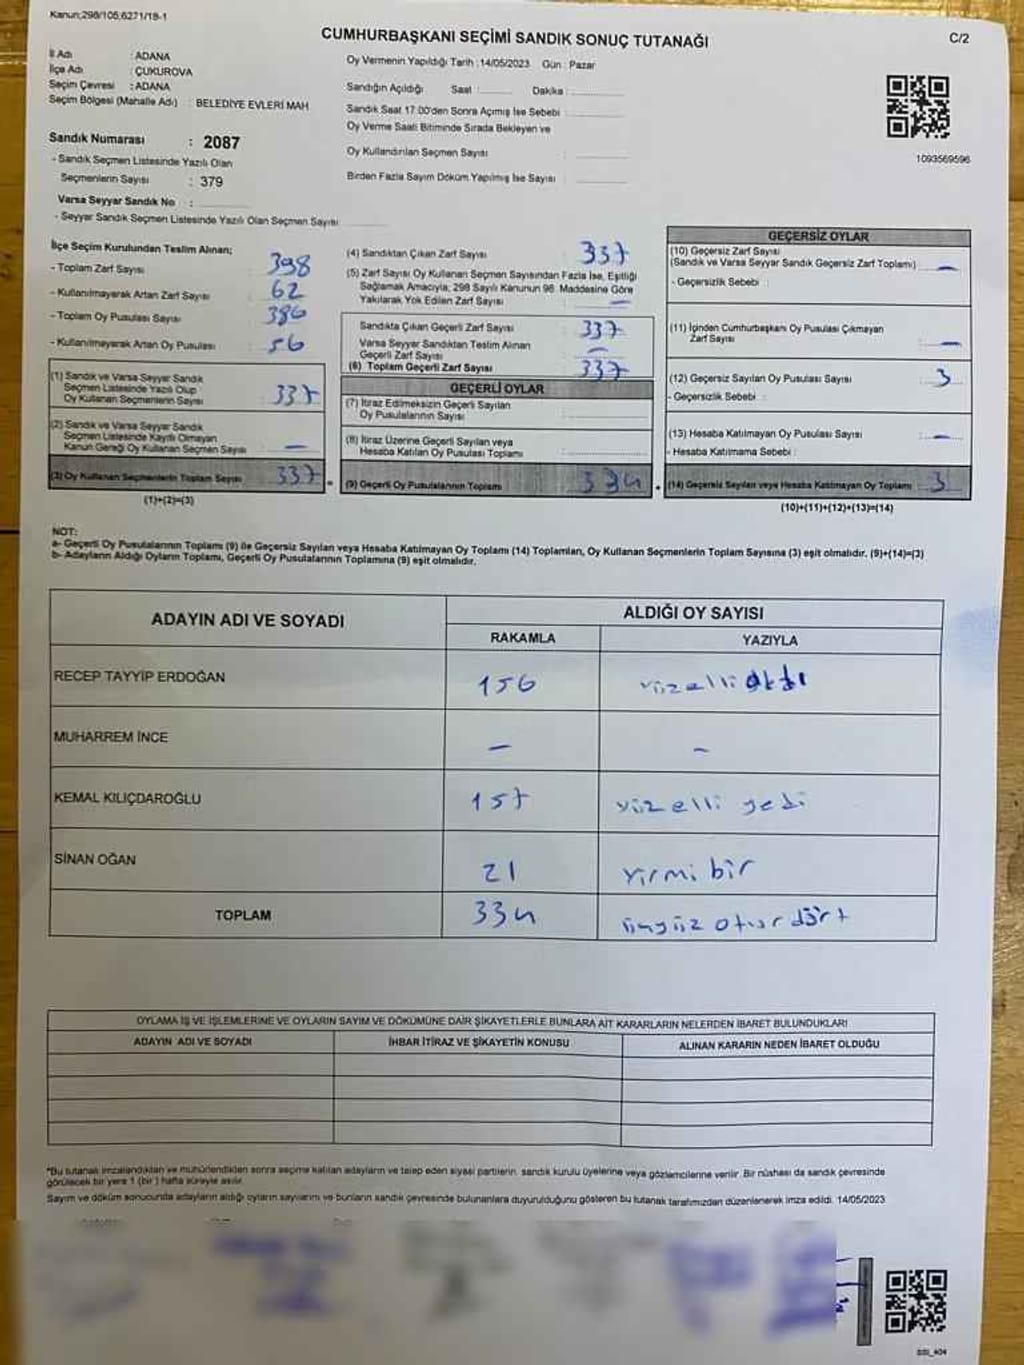 Kanun;298/105;6271/18-1
CUMHURBAŞKANI SEÇİMİ SANDIK SONUÇ TUTANAĞI
C/2
İl Adı : ADANA
İlçe Adı : ÇUKUROVA
Seçim Çevresi : ADANA
Seçim Bölgesi (Mahalle Adı) : BELEDİYE EVLERİ MAH
Sandık Numarası : 2087
- Sandık Seçmen Listesinde Yazılı Olan
Seçmenlerin Sayısı : 379
Varsa Seyyar Sandık No :
- Seyyar Sandık Seçmen Listesinde Yazılı Olan Seçmen Sayısı
Oy Vermenin Yapıldığı Tarih :14/05/2023 Gün : Pazar
Sandığın Açıldığı Saat : Dakika :
Sandık Saat 17:00'den Sonra Açılmış İse Sebebi :
Oy Verme Saati Bitiminde Sırada Bekleyen ve
Oy Kullandırılan Seçmen Sayısı :
Birden Fazla Sayım Döküm Yapılmış İse Sayısı :
1093569596
İlçe Seçim Kurulundan Teslim Alınan;
- Toplam Zarf Sayısı : 398
- Kullanılmayarak Artan Zarf Sayısı : 62
- Toplam Oy Pusulası Sayısı : 386
- Kullanılmayarak Artan Oy Pusulası : 56
(1) Sandık ve Varsa Seyyar Sandık
Seçmen Listesinde Yazılı Olup
Oy Kullanan Seçmenlerin Sayısı : 337
(2) Sandık ve Varsa Seyyar Sandık
Seçmen Listesinde Kayıtlı Olmayan
Kanun Gereği Oy Kullanan Seçmen Sayısı : —
(3) Oy Kullanan Seçmenlerin Toplam Sayısı : 337
(1)+(2)=(3)
(4) Sandıktan Çıkan Zarf Sayısı : 337
(5) Zarf Sayısı Oy Kullanan Seçmen Sayısından Fazla İse, Eşitliği
Sağlamak Amacıyla; 298 Sayılı Kanunun 98. Maddesine Göre
Yakılarak Yok Edilen Zarf Sayısı : —
Sandıkta Çıkan Geçerli Zarf Sayısı : 337
Varsa Seyyar Sandıktan Teslim Alınan
Geçerli Zarf Sayısı : —
(6) Toplam Geçerli Zarf Sayısı : 337
GEÇERLİ OYLAR
(7) İtiraz Edilmeksizin Geçerli Sayılan
Oy Pusulalarının Sayısı :
(8) İtiraz Üzerine Geçerli Sayılan veya
Hesaba Katılan Oy Pusulası Toplamı :
(9) Geçerli Oy Pusulalarının Toplamı : 334
GEÇERSİZ OYLAR
(10) Geçersiz Zarf Sayısı
(Sandık ve Varsa Seyyar Sandık Geçersiz Zarf Toplamı) : —
- Geçersizlik Sebebi :
(11) İçinden Cumhurbaşkanı Oy Pusulası Çıkmayan
Zarf Sayısı : —
(12) Geçersiz Sayılan Oy Pusulası Sayısı : 3
- Geçersizlik Sebebi :
(13) Hesaba Katılmayan Oy Pusulası Sayısı : —
- Hesaba Katılmama Sebebi :
(14) Geçersiz Sayılan veya Hesaba Katılmayan Oy Toplamı : 3
(10)+(11)+(12)+(13)=(14)
NOT:
a- Geçerli Oy Pusulalarının Toplamı (9) ile Geçersiz Sayılan veya Hesaba Katılmayan Oy Toplamı (14) Toplamları, Oy Kullanan Seçmenlerin Toplam Sayısına (3) eşit olmalıdır. (9)+(14)=(3)
b- Adayların Aldığı Oyların Toplamı, Geçerli Oy Pusulalarının Toplamına (9) eşit olmalıdır.
ADAYIN ADI VE SOYADI ALDIĞI OY SAYISI
RAKAMLA YAZIYLA
RECEP TAYYİP ERDOĞAN 156 yüzelli altı
MUHARREM İNCE — —
KEMAL KILIÇDAROĞLU 157 yüzelli yedi
SİNAN OĞAN 21 yirmi bir
TOPLAM 334 üçyüz otuz dört
OYLAMA İŞ VE İŞLEMLERİNE VE OYLARIN SAYIM VE DÖKÜMÜNE DAİR ŞİKAYETLERLE BUNLARA AİT KARARLARIN NELERDEN İBARET BULUNDUKLARI
ADAYIN ADI VE SOYADI İHBAR İTİRAZ VE ŞİKAYETİN KONUSU ALINAN KARARIN NEDEN İBARET OLDUĞU
*Bu tutanak imzalandıktan ve mühürlendikten sonra seçime katılan adayların ve talep eden siyasi partilerin, sandık kurulu üyelerine veya gözlemcilerine verilir. Bir nüshası da sandık çevresinde
görülecek bir yere 1 (bir) hafta süreyle asılır.
Sayım ve döküm sonucunda adayların aldığı oyların sayılarını ve bunların sandık çevresinde bulunanlara duyurulduğunu gösteren bu tutanak tarafımızdan düzenlenerek imza edildi. 14/05/2023